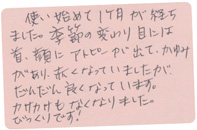 使い始めて1ケ月が経ち
ました。季節の変わり目には
首、顔にアトピーが出て、かゆみ
があり、赤くなっていましたが、
だんだん良くなっています。
カサカサもなくなりました。
びっくりです!